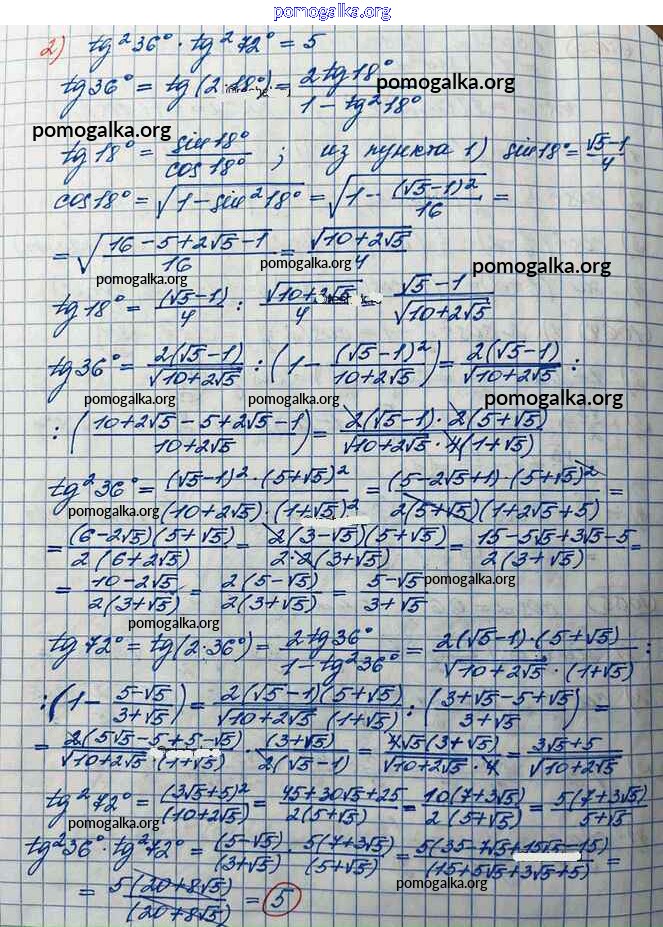 pomogalka.org
2) tg²36° · tg²72° = 5
tg36° = tg(2·18°) = 2tg18° / (1 - tg²18°) pomogalka.org
pomogalka.org
tg18° = sin18° / cos18° ; из пункта 1) sin18° = (√5-1)/4
cos18° = √(1 - sin²18°) = √(1 - (√5-1)²/16) =
= √((16-5+2√5-1)/16) = √(10+2√5)/4
pomogalka.org pomogalka.org pomogalka.org
tg18° = (√5-1)/4 : √(10+2√5)/4 = (√5-1)/√(10+2√5)
tg36° = 2(√5-1)/√(10+2√5) : (1 - (√5-1)²/(10+2√5)) = 2(√5-1)/√(10+2√5) :
pomogalka.org pomogalka.org pomogalka.org
: ((10+2√5-5+2√5-1)/(10+2√5)) = 2(√5-1)·2(5+√5) / (√(10+2√5)·4(1+√5))
tg²36° = (√5-1)²·(5+√5)² / ((10+2√5)·(1+√5)²) = (5-2√5+1)·(5+√5)² / (2(5+√5)(1+2√5+5)) =
pomogalka.org
= (6-2√5)(5+√5) / (2(6+2√5)) = 2(3-√5)(5+√5) / (2·2(3+√5)) = (15-5√5+3√5-5) / (2(3+√5)) =
= (10-2√5) / (2(3+√5)) = 2(5-√5) / (2(3+√5)) = (5-√5)/(3+√5) pomogalka.org
pomogalka.org
tg72° = tg(2·36°) = 2tg36° / (1-tg²36°) = 2(√5-1)·(5+√5) / (√(10+2√5)·(1+√5)) :
: (1 - (5-√5)/(3+√5)) = 2(√5-1)(5+√5) / (√(10+2√5)(1+√5)) : ((3+√5-5+√5)/(3+√5)) =
= 2(5√5-5+5-√5) / (√(10+2√5)·(1+√5)) · (3+√5)/(2(√5-1)) = 4√5(3+√5) / (√(10+2√5)·4) = (3√5+5)/√(10+2√5)
tg²72° = (3√5+5)²/(10+2√5) = (45+30√5+25)/(2(5+√5)) = 10(7+3√5)/(2(5+√5)) = 5(7+3√5)/(5+√5)
pomogalka.org
tg²36°·tg²72° = (5-√5)/(3+√5) · 5(7+3√5)/(5+√5) = 5(35-7√5+15√5-15)/(15+5√5+3√5+5) =
pomogalka.org
= 5(20+8√5)/(20+8√5) = 5